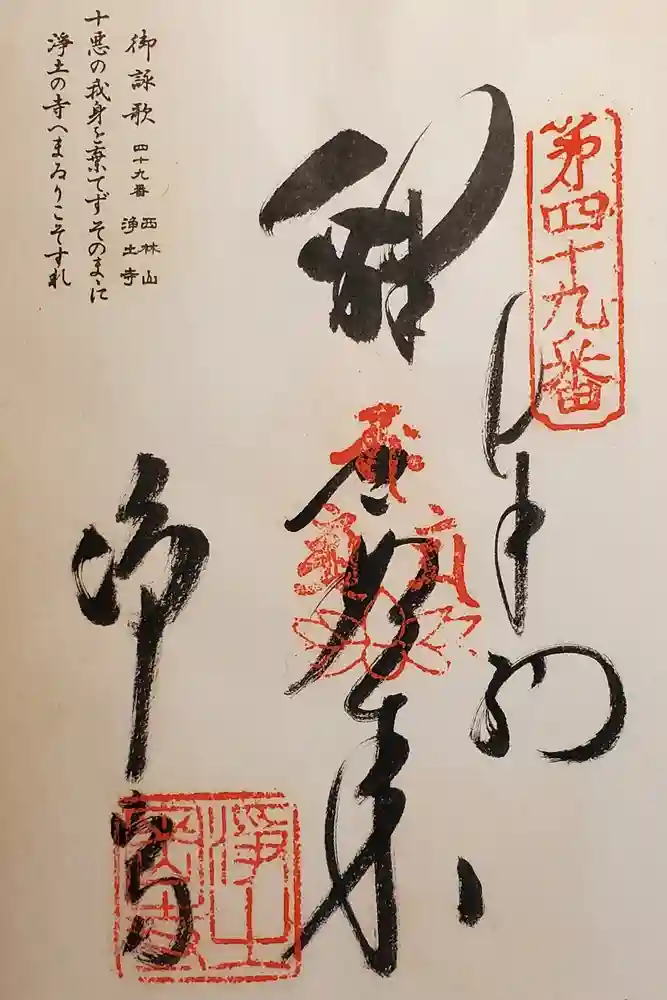 第四十九番
奉納
釈迦如来
浄土寺
御詠歌 四十九番 西林山
浄土寺
十悪の我身を棄てずそのまゝに
浄土の寺へまゐりこそすれ